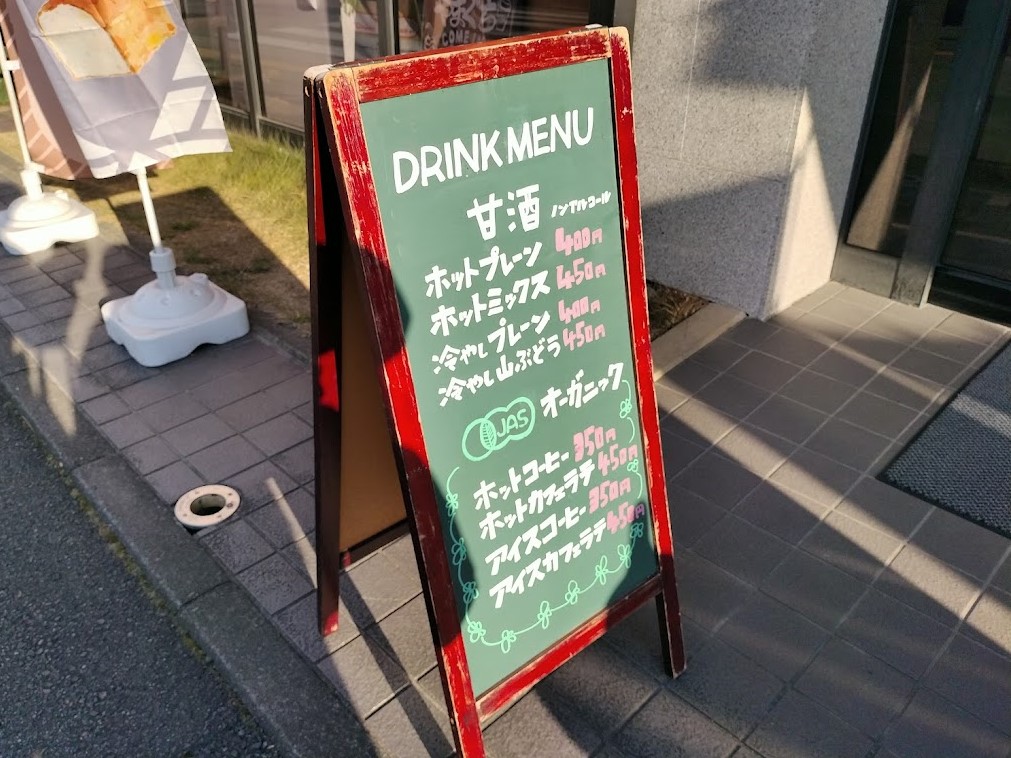 DRINK MENU
甘酒 ノンアルコール
ホットプレーン 400円
ホットミックス 450円
冷やしプレーン 400円
冷やし山ぶどう 450円
JAS オーガニック
ホットコーヒー 350円
ホットカフェラテ 450円
アイスコーヒー 350円
アイスカフェラテ 450円